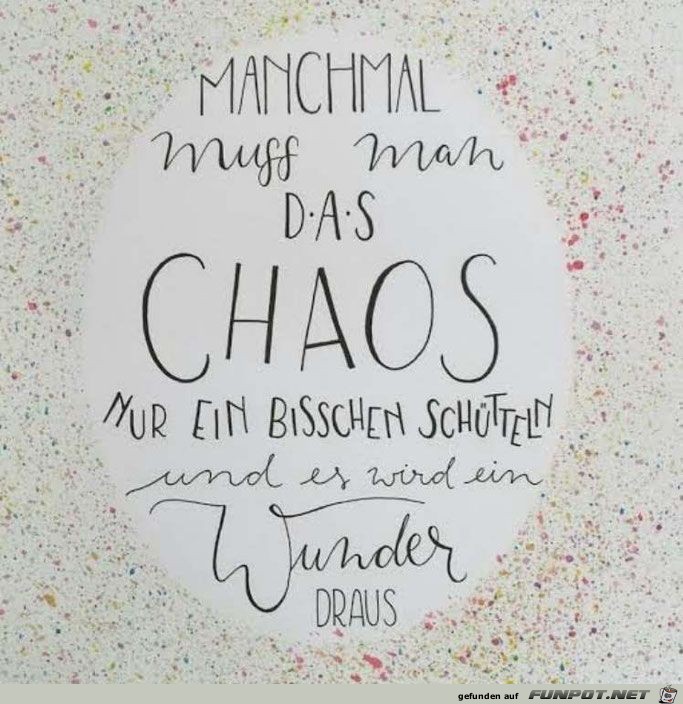 MANCHMAL
muss man
D·A·S
CHAOS
NUR EIN BISSCHEN SCHÜTTELN
und es wird ein
Wunder
DRAUS
gefunden auf FUNPOT.NET